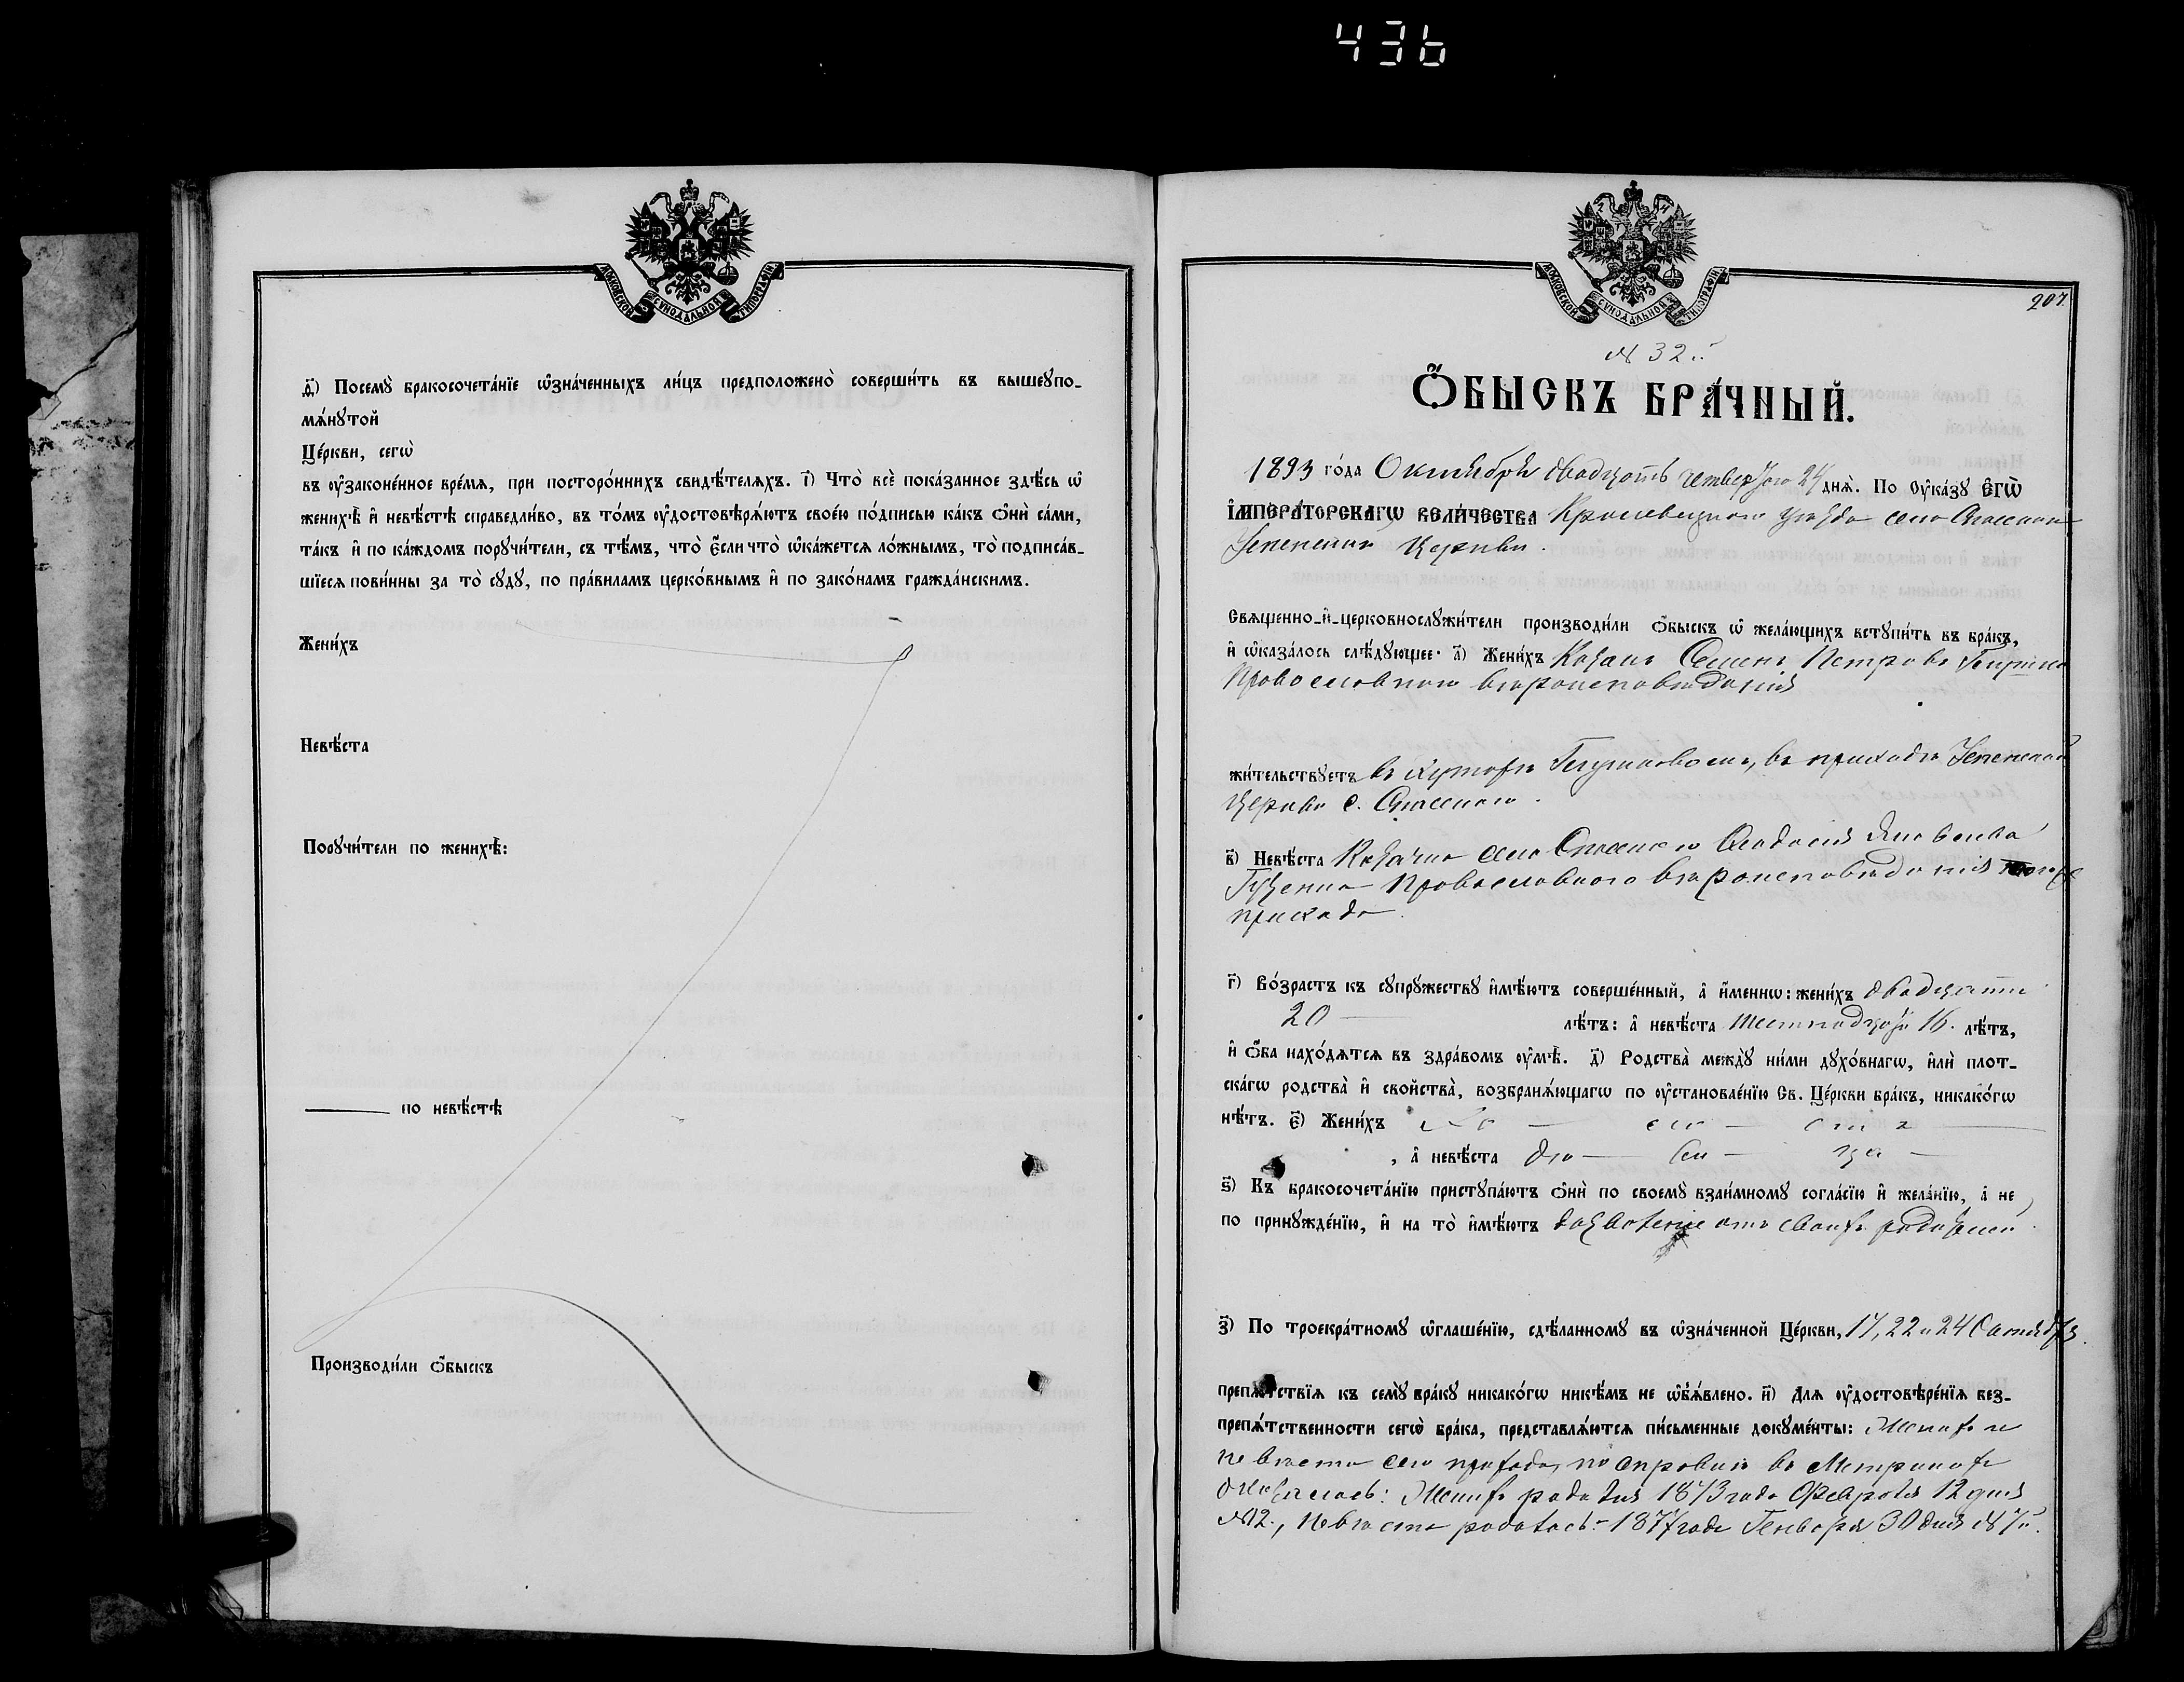 436
МОСКОВСКОЙ СѴНОДАЛЬНОЙ ТИПОГРАФІИ
д҃і) Посемꙋ̀ бракосочета́нїе ѡ҆зна́ченныхъ ли́цъ предположено̀ соверши́ть въ вышеꙋпо-
мѧ́нꙋтой
Це́ркви, сегѡ̀
въ ᲂу҆законе́нное вре́мѧ, при посторо́ннихъ свидѣ́телѧхъ. і҃) Что̀ всѐ пока́занное здѣ́сь ѡ҆
женихѣ̀ и҆ невѣ́стѣ справедли́во, въ то́мъ ᲂу҆достовѣрѧ́ютъ свое́ю по́дписью ка́къ ѻ҆нѝ са́ми,
та́къ и҆ по ка́ждомъ порꙋчи́тели, съ тѣ́мъ, что̀ є҆́сли что̀ ѡ҆ка́жетсѧ ло́жнымъ, то̀ подписа́в-
шїесѧ пови́нны за то̀ сꙋдꙋ̀, по пра́виламъ церко́внымъ и҆ по зако́намъ гражда́нскимъ.
Жени́хъ
Невѣ́ста
Порꙋчи́тели по женихѣ̀:
по невѣ́стѣ
Производи́ли ѻ҆́быскъ
МОСКОВСКОЙ СѴНОДАЛЬНОЙ ТИПОГРАФІИ
207.
№ 32й
Ѻ҆́БЫСКЪ БРА́ЧНЫЙ.
1893 го́да Октября двадцать четвертого 24 днѧ̀. По ᲂу҆ка́зꙋ Є҆ГѠ̀
І҆МПЕРА́ТОРСКАГѠ ВЕЛИ́ЧЕСТВА Кролевецкого уезда села Спасскаго
Успенской Церкви.
Свѧще́нно-и҆-церковнослꙋжи́тели производи́ли ѻ҆́быскъ ѡ҆ жела́ющихъ встꙋпи́ть въ бра́къ,
и҆ ѡ҆каза́лось слѣ́дꙋющее: а҃) Жени́хъ Козакъ Семенъ Петровъ
Православного вероисповеданія
жи́тельствꙋетъ въ хуторе въ приходе Успенской
Церкви с. Спасского.
в҃) Невѣ́ста Козачка села Спасского Феодосія Яковлева
Гуценко Православного вероисповеданія тогоже
прихода.
г҃) Во́зрастъ къ сꙋпрꙋ́жествꙋ и҆мѣ́ютъ соверше́нный, а҆ и҆́меннѡ: жени́хъ двадцати
20 лѣ́тъ: а҆ невѣ́ста шестнадцать 16. лѣ́тъ,
и҆ ѻ҆́ба нахо́дѧтсѧ въ здра́вомъ ᲂу҆мѣ̀. д҃) Родства̀ междꙋ̀ ни́ми дꙋхо́внагѡ, и҆лѝ плот-
ска́гѡ родства̀ и҆ свойства̀, возбранѧ́ющагѡ по ᲂу҆становле́нїю Св. Це́ркви бра́къ, никако́гѡ
нѣ́тъ. є҃) Жени́хъ хо — ло — стъ —
, а҆ невѣ́ста де — ви — ца —
ѕ҃) Къ бракосочета́нїю пристꙋпа́ютъ ѻ҆нѝ по своемꙋ̀ взаи́мномꙋ согла́сїю и҆ жела́нїю, а҆ не
по принꙋжде́нїю, и҆ на то̀ и҆мѣ́ютъ дозволеніе отъ своихъ родителей.
з҃) По троекра́тномꙋ ѡ҆глаше́нїю, сдѣ́ланномꙋ въ ѡ҆зна́ченной Це́ркви, 17, 22 и 24 Октября
препѧ́тствїѧ къ семꙋ̀ бра́кꙋ никако́гѡ никѣ́мъ не ѡ҆б̾ѧ́влено. и҃) Для ᲂу҆достовѣре́нїѧ без-
препѧ́тственности сегѡ̀ бра́ка, представлѧ́ютсѧ пи́сьменные докꙋме́нты: Женихъ и
невеста сего прихода, по справкѣ въ Метрикахъ
оказалось: Женихъ родился 1873 года Февраля 12 дня
№ 12., невеста родилась 1877 года Генваря 30 дня № 7й.